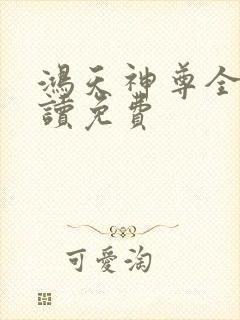 鴻天神尊全
讀免費
可愛淘